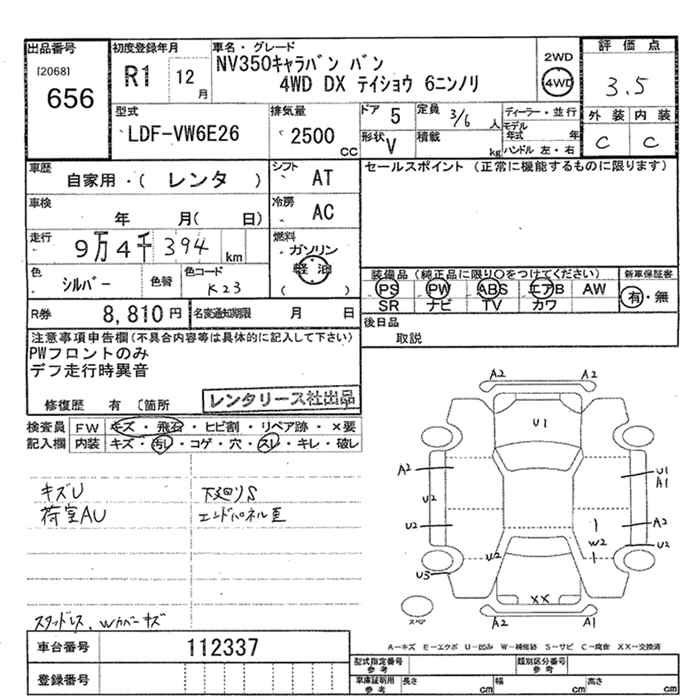 出品番号
[2068]
656
初度登録年月
R1 12月
車名・グレード
NV350キャラバン バン
4WD DX テイショウ 6ニンノリ
2WD
4WD
評価点
3.5
外装 内装
C C
型式
LDF-VW6E26
排気量
2500 CC
ドア 5
形状 V
定員 3/6 人
積載 kg
ディーラー・並行
モデル年式 年
ハンドル 左・右
車歴
自家用・( レンタ )
シフト
AT
車検
年 月( 日)
冷房
AC
走行
9万4千394 km
燃料
ガソリン
軽油
( )
色
シルバー
色替
色コード
K23
R券 8,810円
名変通知期限 月 日
セールスポイント (正常に機能するものに限ります)
装備品 (純正品に限り○をつけてください)
PS PW ABS エアB AW
SR ナビ TV カワ
新車保証書
有・無
後日品
取説
注意事項申告欄(不具合内容等は具体的に記入して下さい)
PWフロントのみ
デフ走行時異音
修復歴 有 〔箇所
レンタリース社出品
検査員記入欄
FW キズ・飛石・ヒビ割・リペア跡・×要
内装 キズ・汚レ・コゲ・穴・スレ・キレ・破レ
キズU
荷室AU
下廻りS
エンドパネル亜
スタッドレス、Wカバーキズ
A2 A2
U1
A2
U1
A1
U2
U2
A2
W2
U2
U2
U3
XX
スペア
A2 A1
A－キズ E－エクボ U－凹み W－補修跡 S－サビ C－腐食 XX－交換済
車台番号 112337
登録番号
型式指定番号
参考
類別区分番号
参考
車庫証明用
参考
長さ cm
幅 cm
高さ cm